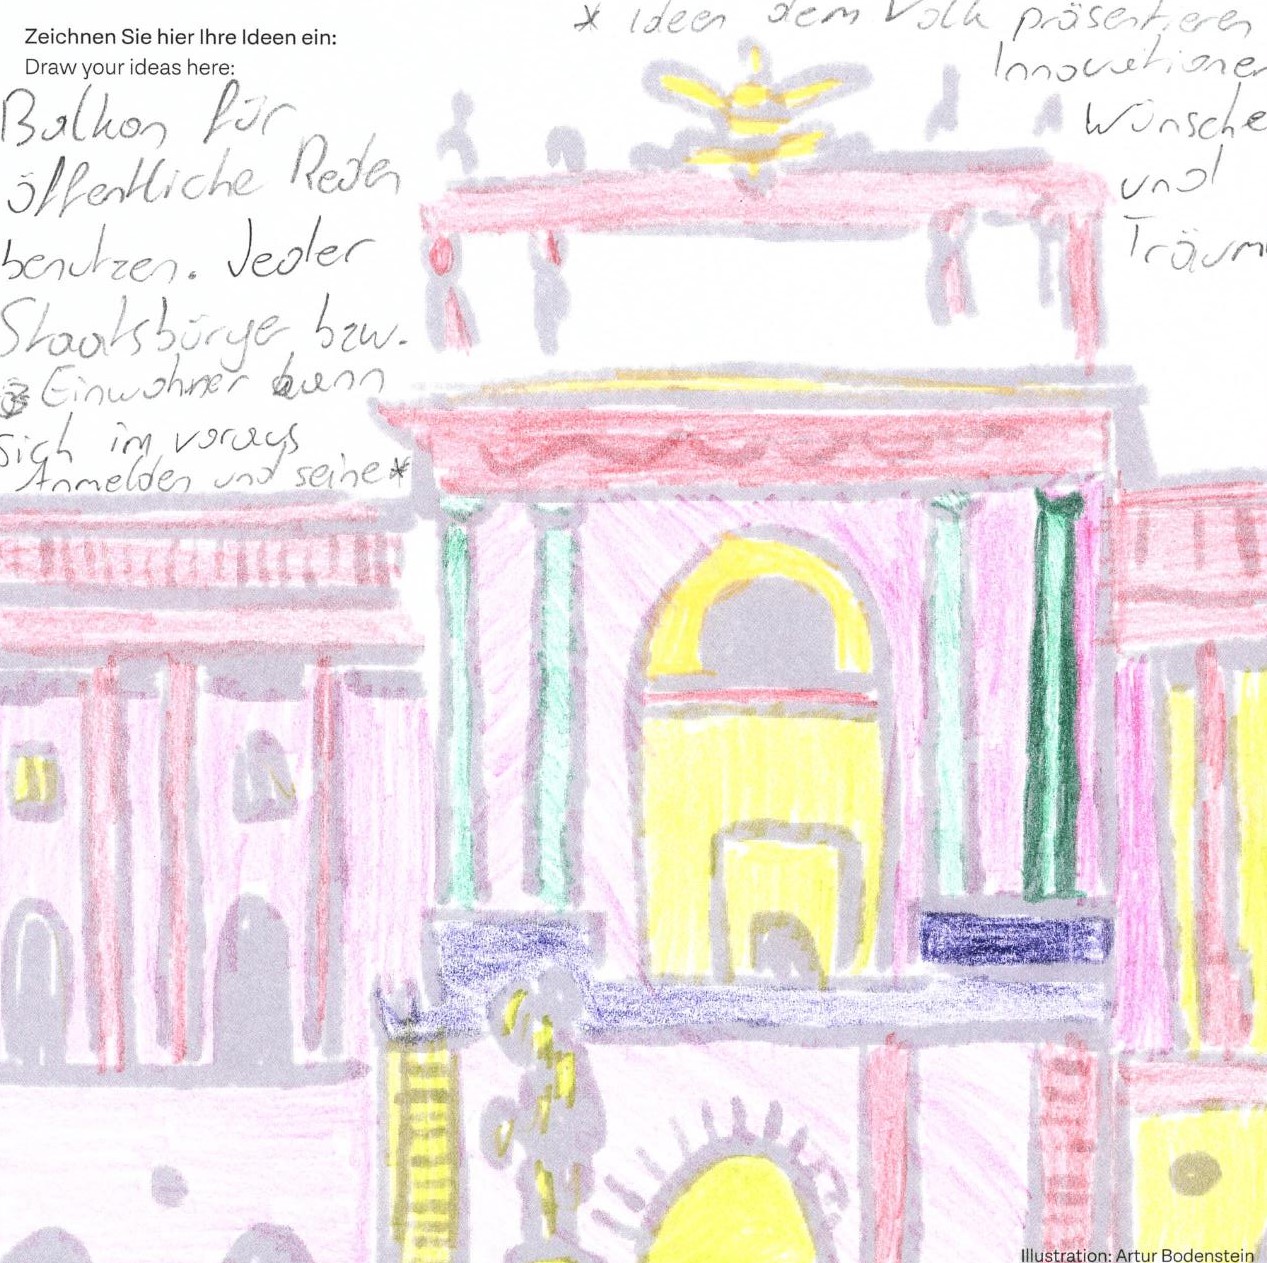 Zeichnen Sie hier Ihre Ideen ein:
Draw your ideas here:
Balkon für
öffentliche Reden
benutzen. Jeder
Staatsbürger bzw.
Einwohner kann
sich im voraus
Anmelden und seine*
* Ideen dem Volk präsentieren
Innovationen
Wünsche
und
Träum
Illustration: Artur Bodenstein